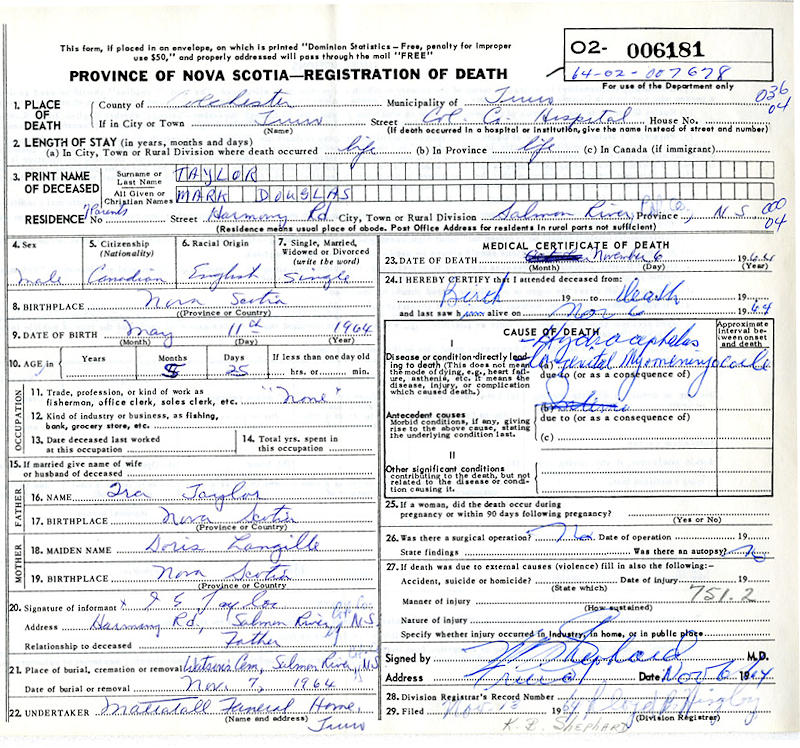 This form, if placed in an envelope, on which is printed "Dominion Statistics – Free, penalty for improper
use $50," and properly addressed will pass through the mail "FREE"
O2- 006181
64-02-007678
For use of the Department only
PROVINCE OF NOVA SCOTIA—REGISTRATION OF DEATH
036
04
1. PLACE OF DEATH
County of Colchester Municipality of Truro
If in City or Town Truro (Name) Street Col. Co. Hospital House No.
(If death occurred in a hospital or institution, give the name instead of street and number)
2. LENGTH OF STAY (in years, months and days)
(a) In City, Town or Rural Division where death occurred life (b) In Province life (c) In Canada (if immigrant)
3. PRINT NAME OF DECEASED
Surname or Last Name TAYLOR
All Given or Christian Names MARK DOUGLAS
RESIDENCE Parents No Street Harmony Rd. City, Town or Rural Division Salmon River, Province N S
000
04
(Residence means usual place of abode. Post Office Address for residents in rural parts not sufficient)
4. Sex male
5. Citizenship (Nationality) Canadian
6. Racial Origin English
7. Single, Married, Widowed or Divorced (write the word) Single
8. BIRTHPLACE Nova Scotia
(Province or Country)
9. DATE OF BIRTH May 11th 1964
(Month) (Day) (Year)
10. AGE in Years Months 5 Days 25 If less than one day old hrs. or min.
OCCUPATION
11. Trade, profession, or kind of work as fisherman, office clerk, sales clerk, etc. "None"
12. Kind of industry or business, as fishing, bank, grocery store, etc.
13. Date deceased last worked at this occupation
14. Total yrs. spent in this occupation
15. If married give name of wife or husband of deceased
FATHER
16. NAME Ira Taylor
17. BIRTHPLACE Nova Scotia
(Province or Country)
MOTHER
18. MAIDEN NAME Doris Langille
19. BIRTHPLACE Nova Scotia
(Province or Country)
20. Signature of informant x I E Taylor
Address Harmony Rd, Salmon River, N.S.
Relationship to deceased Father
21. Place of burial, cremation or removal Watson's Cem, Salmon River, NS
Date of burial or removal Nov. 7, 1964
22. UNDERTAKER Mattatall Funeral Home,
(Name and address) Truro
MEDICAL CERTIFICATE OF DEATH
23. DATE OF DEATH November 6 1964
(Month) (Day) (Year)
24. I HEREBY CERTIFY that I attended deceased from:
Birth 19 to death 19
and last saw h alive on Nov 6 1964
CAUSE OF DEATH
Approximate Interval between onset and death
I
Disease or condition directly leading to death (This does not mean the mode of dying, e.g., heart failure, asthenia, etc. It means the disease, injury, or complication which caused death.)
Hydrocephalus
(a) Congenital Myomeningocoele
due to (or as a consequence of)
Antecedent causes
Morbid conditions, if any, giving rise to the above cause, stating the underlying condition last.
(b)
due to (or as a consequence of)
(c)
II
Other significant conditions
contributing to the death, but not related to the disease or condition causing it.
25. If a woman, did the death occur during pregnancy or within 90 days following pregnancy?
(Yes or No)
26. Was there a surgical operation? No Date of operation 19
State findings Was there an autopsy? No
27. If death was due to external causes (violence) fill in also the following:–
Accident, suicide or homicide? Date of injury 19
(State which)
751.2
Manner of injury
(How sustained)
Nature of injury
Specify whether injury occurred in industry, in home, or in public place
Signed by Shephard M.D.
Address Truro Date Nov 6 1964
28. Division Registrar's Record Number
29. Filed Nov. 12 1964
(Division Registrar)
K. B. SHEPHARD